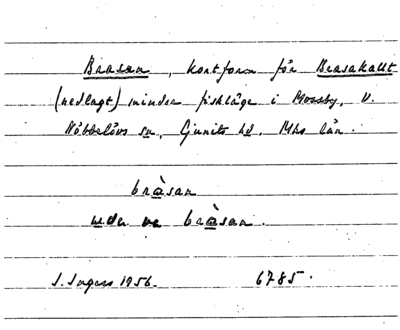 Brasan, kortform för Brasahallt
(nedlagt) mindre fiskläge i Mossby, V.
Nöbbelövs sn, Ljunits hd. Mhs län.
bràsan
ve bràsan.
S. Ingers 1956. 6785.